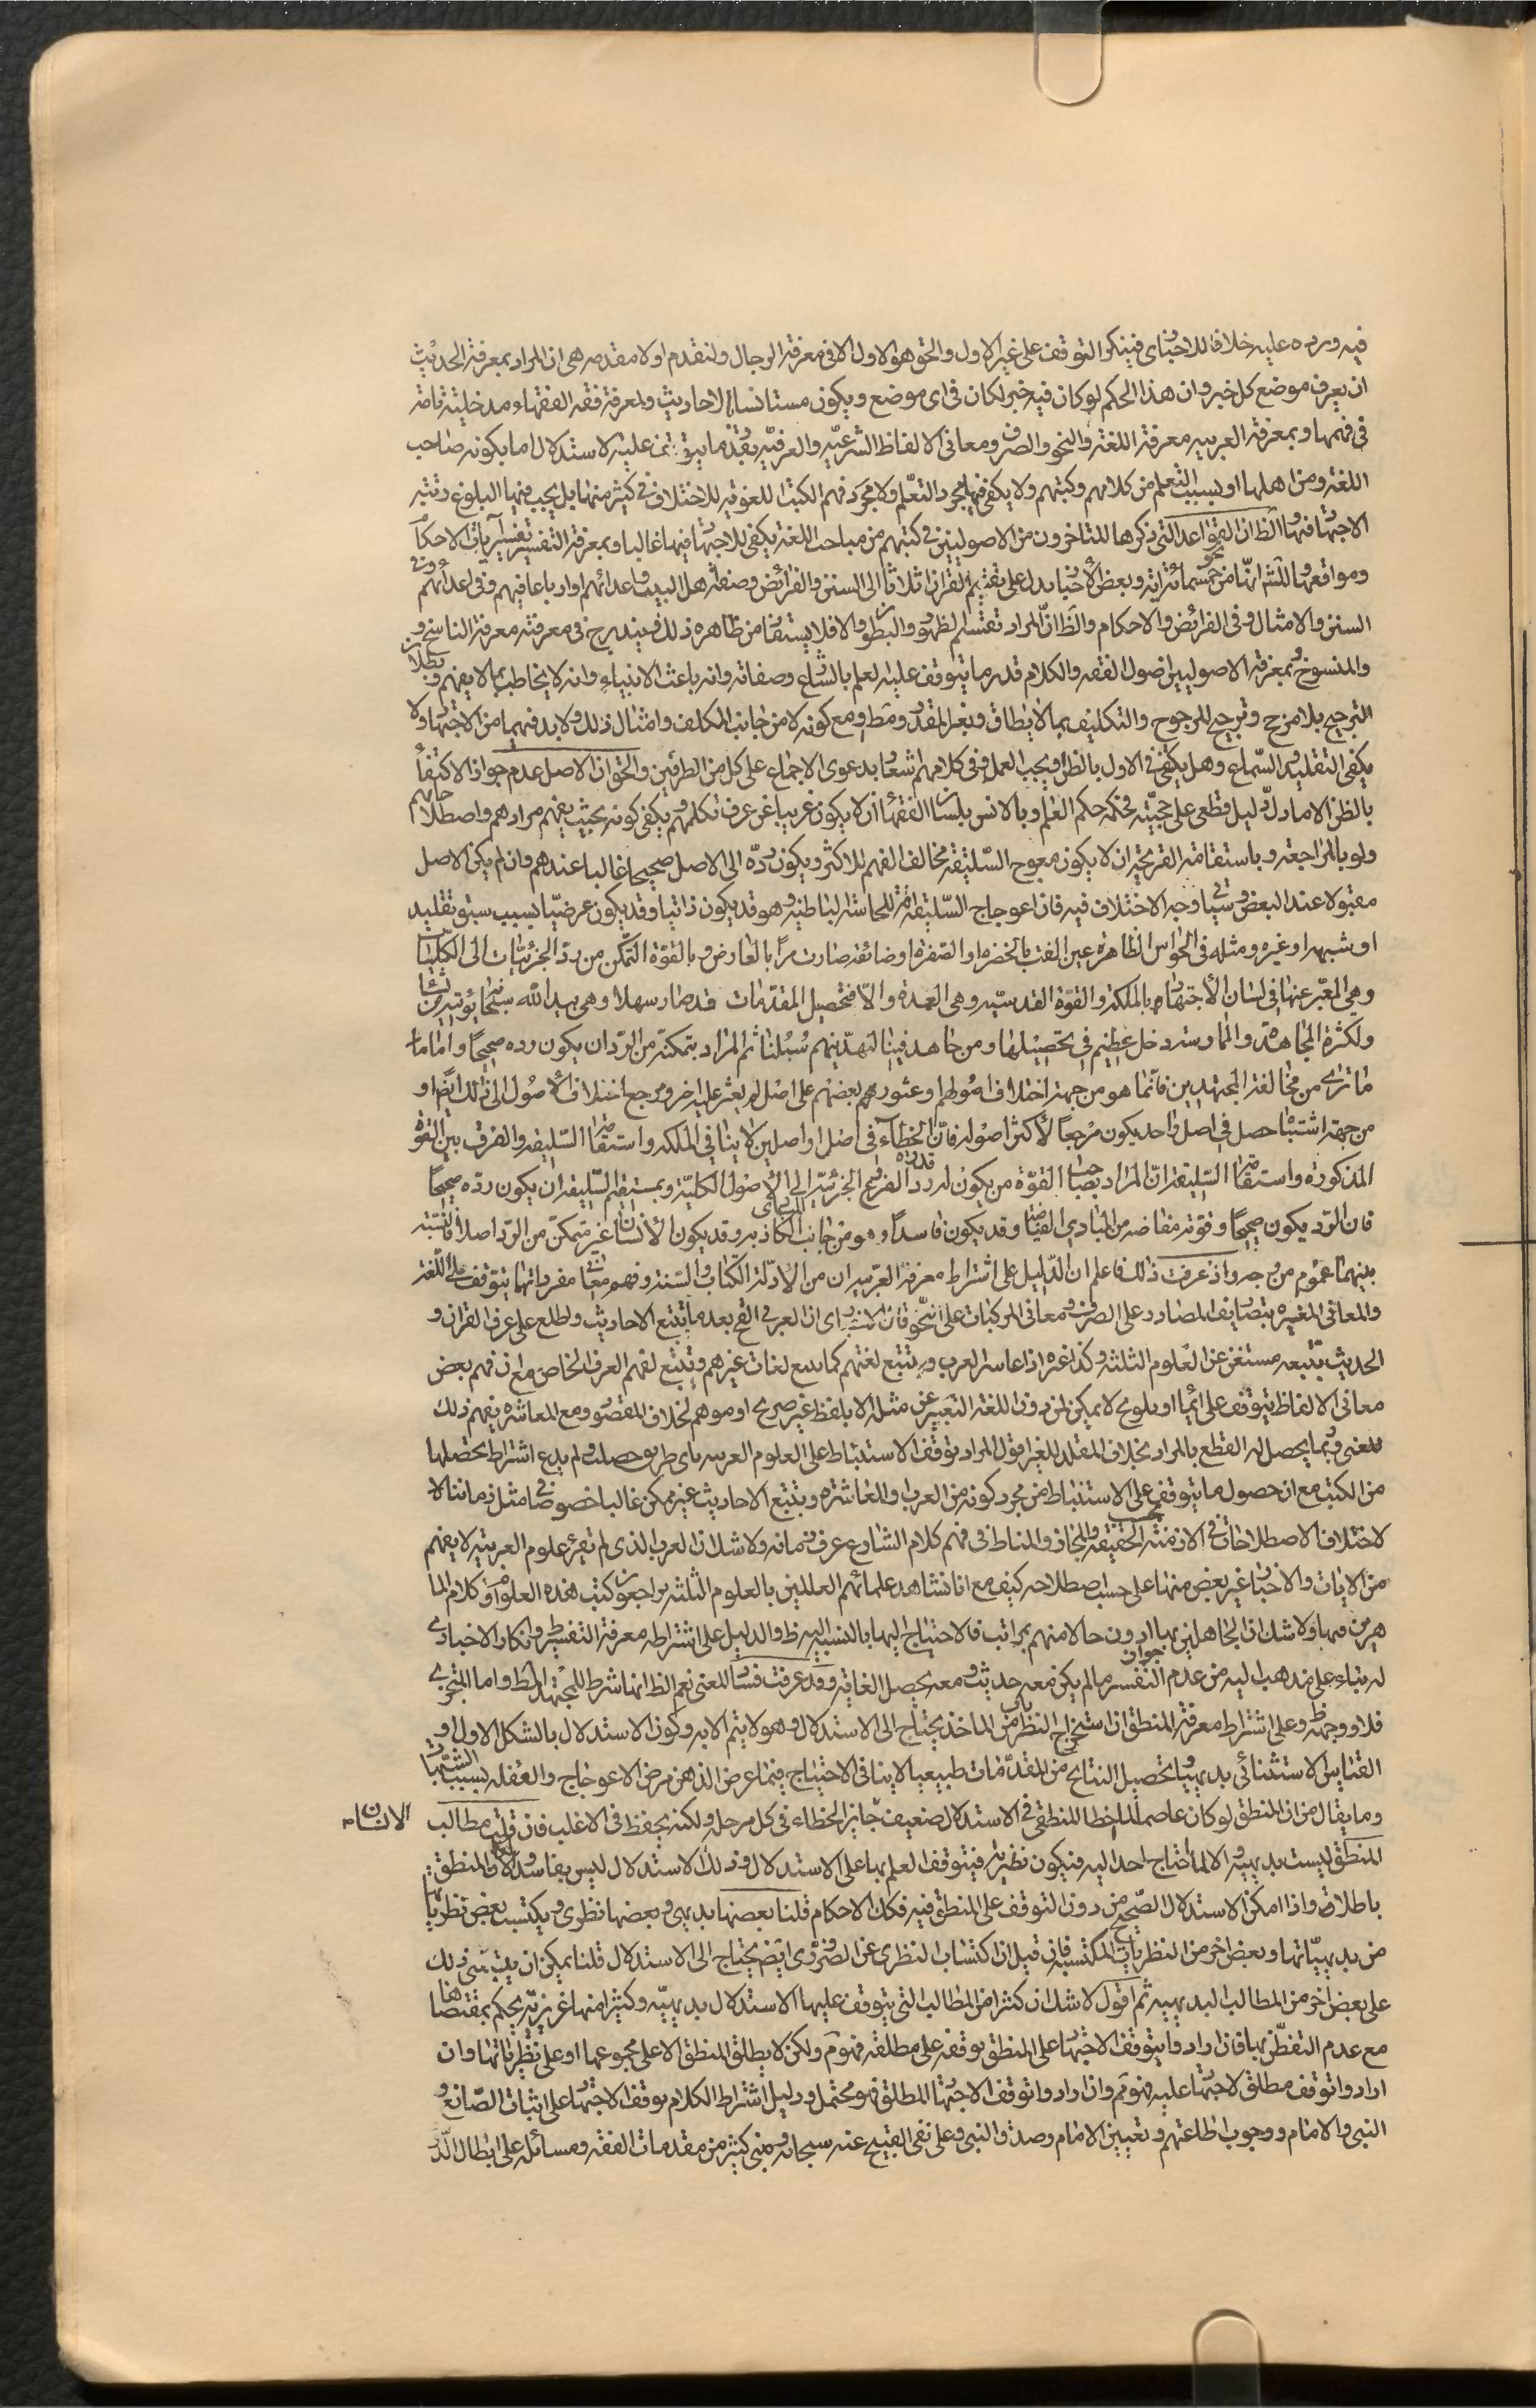 فيه وروده عليه خلافا للاخبارى فينكر التوقف على غير الاول والحق هو الاول الا فى معرفة الرجال ولنقدم اولا مقدمه هى ان المراد بمعرفة الحديث
ان يعرف موضع كل خبر وان هذا الحكم لو كان فيه خبر لكان فى اى موضع ويكون مستانسا بالاحاديث ولمعرفة فقه الفقهاء مدخلية تامة
فى فهمها وبمعرفة العربيه معرفة اللغة والنحو والصرف ومعانى الالفاظ الشرعيّه والعرفيّه بقدر ما يتوقف عليه الاستدلال اما بكونه صاحب
اللغة ومن اهلها او بسبب التعلم من كلامهم وكتبهم ولا يكفى فيها مجرد التعلّم ولا مجرد فهم الكتب اللغويه للاختلاف فى كثير منها بل يجب فيها البلوغ رتبة
الاجتهاد فيها والظ ان القواعد التى ذكرها المتاخرون من الاصوليين فى كتبهم من مباحث اللغة يكفى للاجتهاد فيها غالبا وبمعرفة التفسير تفسير آيات الاحكام
ومواقعها والمشهور انها نحو من خمسمائة اية وبعض الاخبار يدل على تقسيم القران اثلاثا الى السنن والفرائض وصفة اهل البيت واعدائهم او ارباعا فيهم وفى اعدائهم وفى
السنن والامثال وفى الفرائض والاحكام والظ ان المراد تقسيم الظهور والبطون والا فلا يستفاد من ظاهره ذلك ويندرج فى معرفته معرفة الناسخ
والمنسوخ وبمعرفة الاصوليين اصول الفقه والكلام قدر ما يتوقف عليه العلم بالشارع وصفاته وانه باعث الانبياء وانه لا يخاطب بما لا يفهم وبطلان
الترجيح بلا مرجح وترجيح المرجوح والتكليف بما لا يطاق وبغير المقدور ومط ومع كونه لا من جانب المكلف وامثال ذلك ولا بد فيهما من الاجتهاد ولا
يكفى التقليد والسّماع وهل يكفى فى الاول بالظن او يجب العمل وفى كلامهم اشعار بدعوى الاجماع على كل من الطرفين والحق ان الاصل عدم جواز الاكتفاء
بالظن الا ما دلّ دليل قطعى على حجيّته فحكمه حكم العلم وبالانس بلسان الفقهاء ان لا يكون غريبا عن عرف تكلمهم ويكفى كونه بحيث يفهم مرادهم واصطلاحاتهم
ولو بالمراجعة وباستقامة القريحة ان لا يكون معوج السّليقة مخالف الفهم للاكثر ويكون ردّه الى الاصل صحيحا غالبا عندهم وان لم يكن الاصل
مقبولا عند البعض وسياتى وجه الاختلاف فيه فان اعوجاج السّليقة افة للحاسة الباطنية وهو قد يكون ذاتيا وقد يكون عرضيّا بسبب سبق تقليد
او شبهه او غيره ومثله فى الحواس الظاهرة عين الفت بالخضره او الصفره او ضائقة صارت مرّا بالعارض وبالقوة التمكّن من ردّ الجزئيّات الى الكليّات
وهى المعبّر عنها فى لسان الأجتهاد بالملكة والقوّة القدسيّه وهى العمدة والا فتحصيل المقدّمات قد صار سهلا وهى بيد الله سبحانه يؤتيه من يشاء
ولكثرة المجاهدة والممارسة دخل عظيم فى تحصيلها ومن جاهد فينا لنهدّينهم سُبُلنا ثم المراد بتمكنه من الرد ان يكون رده صحيحًا واما ما
ما تراى من مخالفة المجتهدين فانما هو من جهة اختلاف اصولهم وعثور بعضهم على اصل لم يعثر عليه اخر ومرجع اختلاف الاصول الى ذلك ايضا او
من جهة اشتباه حصل فى اصل واحد يكون مرجعا لأكثر اصوله فانّ الخطاء فى اصل او اصلين لا ينافى الملكه واستقامة السّليقه والفرق بين القوة
المذكورة واستقامة السّليقة انّ المراد بصاحب القوّة من يكون له ردد الفروع الجزئيّة الى الاصول الكلية وبمستقيم السّليقه ان يكون ردّه صحيحًا
فان الرّد يكون صحيحًا وقوته مفاضه من المبادى الفياضه وقد يكون فاسدًا وهو من جانب الكاذبه وقد يكون الانسان غير متمكن من الرّد اصلا فالنسبة
بينهما عموم من وجه واذ عرفت ذلك فاعلم ان الدّليل على اشتراط معرفة العربيه ان من الادلّة الكتاب والسّنة وفهم معانى مفرداتهما يتوقف على اللّغة
والمعانى المغيره بتصاريف المصادر على الصرف ومعانى المركبات على النحو فان العربى القح بعد ما تتبع الاحاديث واطلع على عرف القران و
الحديث بتتبعه مستغن عن العلوم الثلثه وكذا غيره اذا عاسر العرب وتتبع لغتهم كما يتتبع لغات غيرهم وتتبع لفهم العرف الخاص مع ان فهم بعض
معانى الالفاظ يتوقف على ايماء او تلويح لا يمكن لمن دون اللغة التعبير عن مثله الا بلفظ غير صريح او موهم لخلاف المقصود ومع المعاشره يفهم ذلك
المعنى وربما يحصل له القطع بالمراد بخلاف المقلد للغير اقول المراد توقف الاستنباط على العلوم العربيه باى طريق حصلت ولم يدع اشتراط تحصيلها
من الكتب مع ان حصول ما يتوقف على الاستنباط من مجرد كونه من العرب والمعاشره وبتتبع الاحاديث غير ممكن غالبا خصوصا فى مثل زماننا لا
لاختلاف الاصطلاحات فى الازمنة بحسب الحقيقه والمجاز والمناط فى فهم كلام الشارع عرف زمانه ولا شك ان العرب الذى لم تقرع علوم العربيه لا يفهم
من الايات والاخبار غير بعض منها على حسب اصطلاحه كيف مع انا نشاهد علمائهم العالمين بالعلوم الثلثه يراجعون كتب هذه العلوم او كلام الما
هرين فيها ولا شك ان الجاهلين بها ادون حالا منهم بمراتب فالاحتياج اليها بالنسبة اليهم ظ والدليل على اشتراطه معرفة التفسير ظ وانكار الاخبارى
له بناء على مذهب اليه من عدم جواز التفسير ما لم يكن معه حديث ومعه يحصل الغاية وقد عرفت فساد المعنى نعم الظ انها شرط للمجتهد المط واما المتجزى
فلا ووجهه ظ وعلى اشتراط معرفة المنطق ان استخراج النظريات من الماخذ يحتاج الى الاستدلال وهو لا يتم الا به وكون الاستدلال بالشكل الاول و
القياس الاستثنائى بديهيا وتحصيل النتايج من المقدّمات طبيعيا لا ينافى الاحتياج فيما عرض الذهن مرض الاعوجاج والغفله بسبب الشبهات
وما يقال من ان المنطق لو كان عاصما لما اخطا المنطقى فى الاستدلال ضعيف جايز الخطاء فى كل مرحله ولكنه يحفظ فى الاغلب فان قلت مطالب
الانسان
المنطق ليست بديهيه والا لما احتاج احد اليه فيكون نظريه فيتوقف العلم بها على الاستدلال وذلك الاستدلال ليس بفاسد والا فالمنطق
باطلا واذا امكن الاستدلال الصّحيح من دون التوقف على المنطق فيه فكك الاحكام قلنا بعضها بديهى وبعضها نظرى ويكتسب بعض نظرياتها
من بديهيّاتها وبعض اخر من النظريات المكتسبه فان قيل ان اكتساب النظرى عن الضرورى ايضم يحتاج الى الاستدلال قلنا يمكن ان يبتنى ذلك
على بعض اخر من المطالب البديهيه ثم اقول لا شك ان كثرا من المطالب التى يتوقف عليها الاستدلال بديهيّه وكثيرا منها غريزيّه يحكم بمقتضاها
مع عدم التفطّن بها فان ارادوا بتوقف الاجتهاد على المنطق توقفه على مطلقه فهو مم ولكن لا يطلق المنطق الا على مجموعها او على نظرياتها وان
ارادوا توقف مطلق الاجتهاد عليه فهو مم وان ارادوا توقف الاجتهاد المطلق فهو محتمل ودليل اشتراط الكلام توقف الاجتهاد على اثبات الصّانع و
النبى والامام ووجوب اطاعتهم وتعيين الامام وصدق النبى وعلى نفى القبيح عنه سبحانه ومبنى كثير من مقدمات الفقه ومسائله على ابطال الدّور